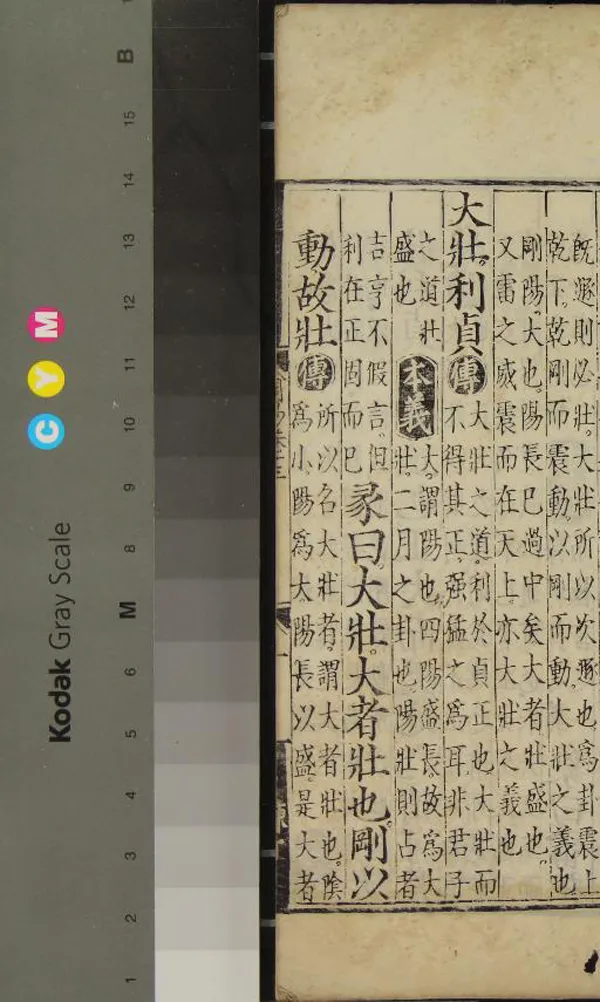 旣遯則必壯。大壯所以次遯也。爲卦震上
乾下。乾剛而震動。以剛而動。大壯之義也
剛陽。大也。陽長已過中矣。大者壯盛也。
又雷之威震而在天上。亦大壯之義也
大壯。利貞 傳
大壯之道。利於貞正也。大壯而
不得其正。强猛之爲耳。非君子
之道壯
盛也
本義
大。謂陽也。四陽盛長。故爲大
壯。二月之卦也。陽壯則占者
吉亨不假言。但
利在正固而已
彖曰大壯。大者壯也。剛以
動。故壯 傳
所以名大壯者。謂大者壯也。陰
爲小。陽爲大。陽長以盛。是大者
Kodak Gray Scale
C Y M
B 15 14 13 12 11 10 9 8 M 6 5 4 3 2 1